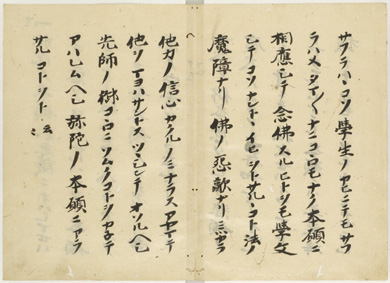 サフラハヽコソ學生ノカヒニテモサフ
ラハメタマ〱ナニコヽロモナク本願ニ
相應シテ念佛スルヒトヲモ學文
シテコソナントヽイヒヲトサルヽコト法ノ
魔障ナリ佛ノ怨敵ナリミツカラ
他力ノ信心カクルノミナラスアヤマテ
他ヲマヨハサントスツヽシンテオソルヘシ
先師ノ御コヽロニソムクコトヲカネテ
アハレムヘシ弥陀ノ本願ニアラ
サルコトヲト云々